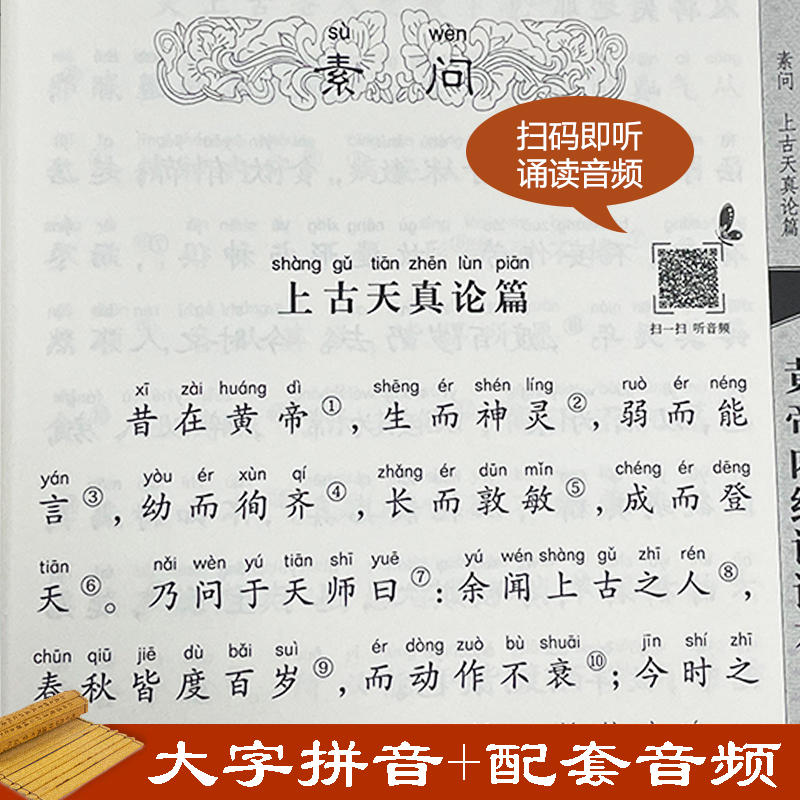 sù wèn
素 问
扫码即听
诵读音频
shàng gǔ tiān zhēn lùn piān
上古天真论篇
扫一扫 听音频
xī zài huáng dì shēng ér shén líng ruò ér néng
昔在黄帝①,生而神灵②,弱而能
yán yòu ér xùn qí zhǎng ér dūn mǐn chéng ér dēng
言③,幼而徇齐④,长而敦敏⑤,成而登
tiān nǎi wèn yú tiān shī yuē yú wén shàng gǔ zhī rén
天⑥。乃问于天师曰⑦:余闻上古之人⑧,
chūn qiū jiē dù bǎi suì ér dòng zuò bù shuāi jīn shí zhī
春秋皆度百岁⑨,而动作不衰⑩;今时之
素问 上古天真论篇
黄帝内经
大字拼音+配套音频